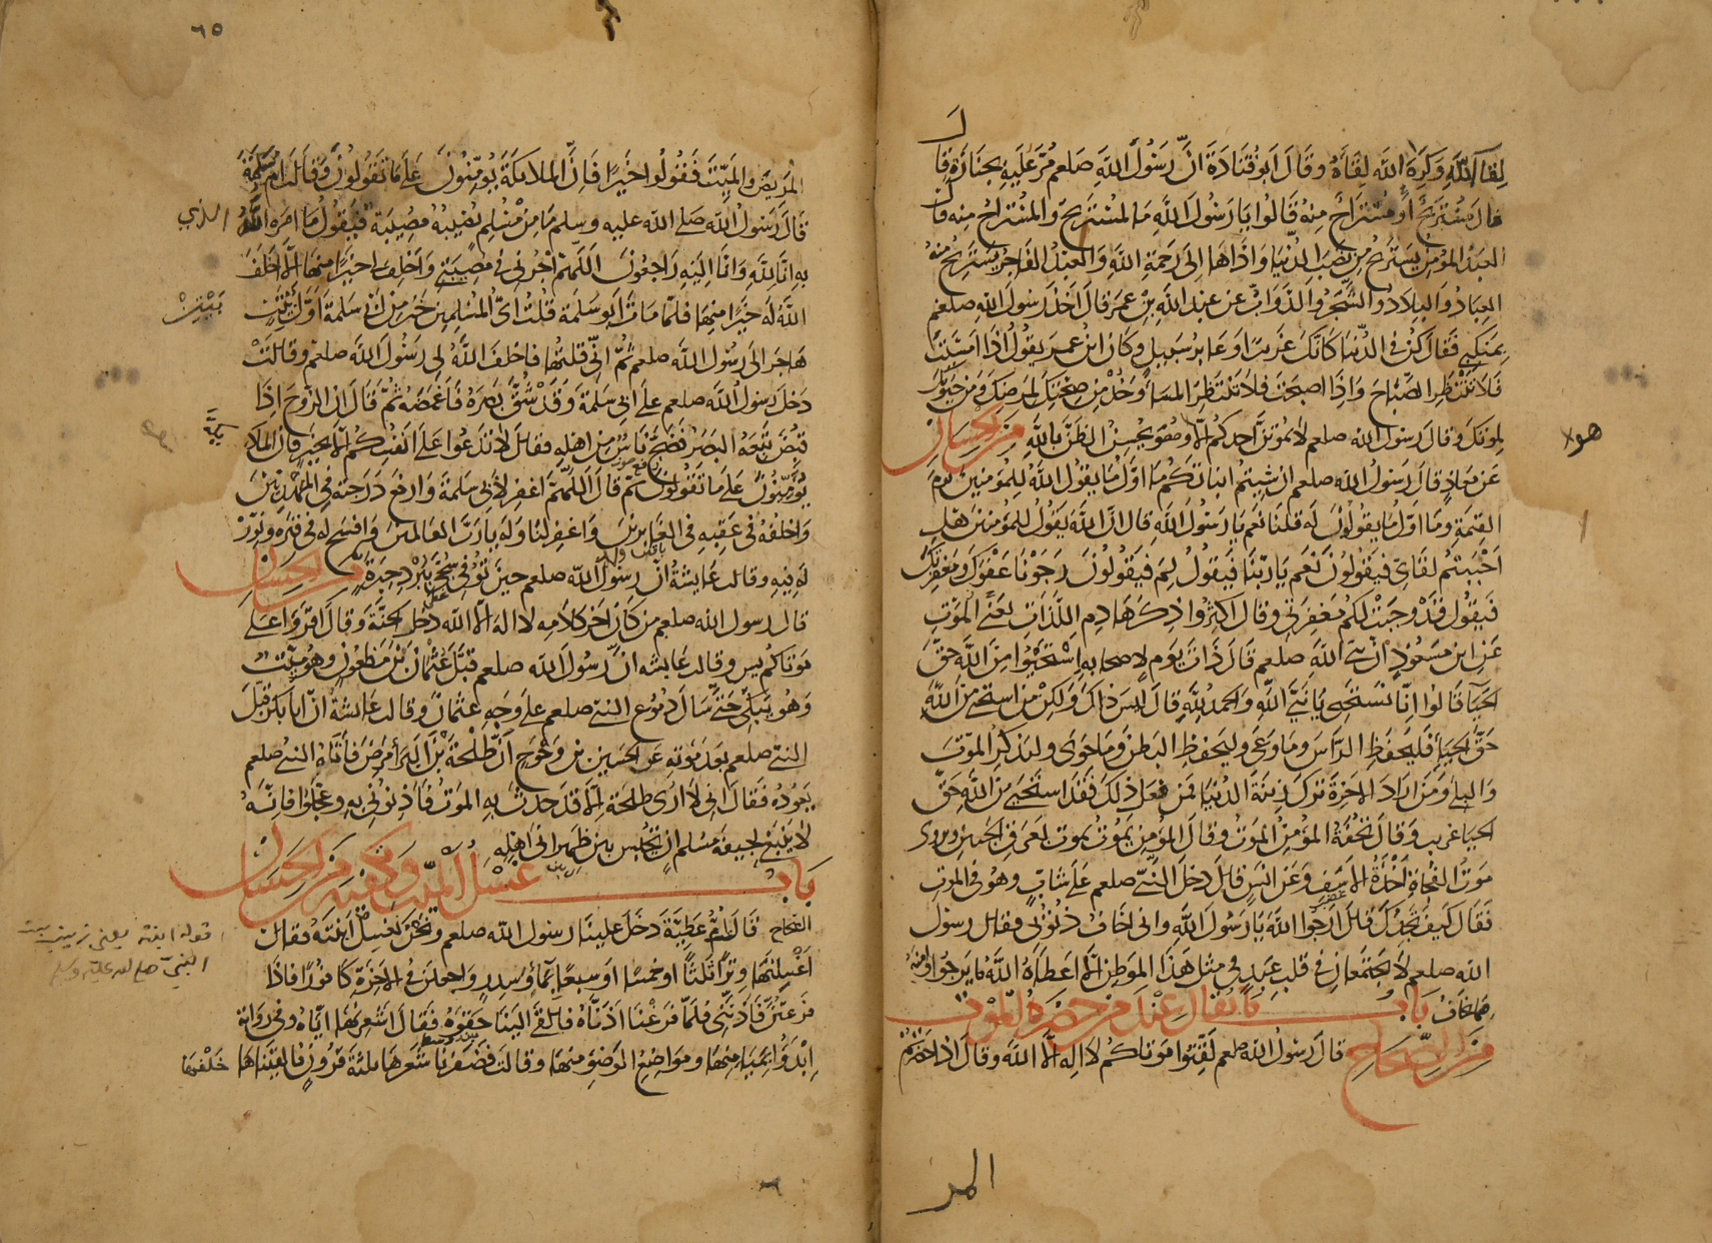 لقاء الله وكره الله لقاءه وقال ابو قتادة ان رسول الله صلعم مر عليه بجنازة فقال
قال مستريح أو مستراح منه قالوا يا رسول الله ما المستريح والمستراح منه قال
العبد المؤمن يستريح من نصب الدنيا واذاها الى رحمة الله والعبد الفاجر يستريح منه
العباد والبلاد والشجر والدواب عن عبد الله بن عمر قال اخذ رسول الله صلعم
بمنكبي فقال كن في الدنيا كانك غريب او عابر سبيل وكان ابن عمر يقول اذا امسيت
فلا تنتظر الصباح واذا اصبحت فلا تنتظر المساء وخذ من صحتك لمرضك ومن حيوتك
لموتك وقال رسول الله صلعم لا يموتن احدكم الا وهو يحسن الظن بالله من الحسان
هولا
عن معاذ قال رسول الله صلعم ان شيتم انباتكم ما اول ما يقول الله للمؤمنين يوم
القيمة وما اول ما يقولون له قلنا نعم يا رسول الله قال ان الله يقول للمؤمنين هل
احببتم لقاءي فيقولون نعم يا ربنا فيقول لم فيقولون رجونا عفوك ومغفرتك
فيقول قد وجبت لكم مغفرتي وقال اكثروا ذكر هادم اللذات يعني الموت
عن ابن مسعود ان نبي الله صلعم قال ذات يوم لاصحابه استحيوا من الله حق
الحيا قالوا انا نستحيي يا نبي الله والحمد لله قال ليس ذلك ولكن من استحيى من الله
حق الحياء فليحفظ الراس وما وعى وليحفظ البطن وما حوى وليذكر الموت
والبلى ومن اراد الاخرة ترك زينة الدنيا فمن فعل ذلك فقد استحيى من الله حق
الحيا غريب وقال تحفة المؤمن الموت وقال المؤمن يموت بعرق الجبين ويروى
موت الفجاة اخذة الاسف وعن انس قال دخل النبي صلعم على شاب وهو في الموت
فقال كيف تجدك قال ارجوا الله يا رسول الله واني اخاف ذنوبي فقال رسول
الله صلعم لا يجتمعان في قلب عبد في مثل هذا الموطن الا اعطاه الله ما يرجوا وامنه
مما يخاف باب ما يقال عند من حضره الموت
من الصحاح قال رسول الله صلعم لقنوا موتاكم لا اله الا الله وقال اذا حضرتم
المر
٦٥
المريض والميت فقولوا خيرا فان الملايكة يؤمنون على ما تقولون وقالت ام سلمة
قال رسول الله صلى الله عليه وسلم ما من مسلم تصيبه مصيبة فيقول ما امره الله الذي
به انا لله وانا اليه راجعون اللهم اجرني في مصيبتي واخلف لي خيرا منها الا اخلف
الله له خيرا منها فلما مات ابو سلمة قلت اي المسلمين خير من ابي سلمة اول بيت
بيت
هاجر الى رسول الله صلعم ثم اني قلتها فاخلف الله لي رسول الله صلعم وقالت
دخل رسول الله صلعم على ابي سلمة وقد شق بصره فاغمضه ثم قال ان الروح اذا
قبض تبعه البصر فضج ناس من اهله فقال لا تدعوا على انفسكم الا بخير فان الملايكة
يؤمنون على ما تقولون ثم قال اللهم اغفر لابي سلمة وارفع درجته في المهديين
واخلفه في عقبه في الغابرين واغفر لنا وله يا رب العالمين وافسح له في قبره ونور
له فيه وقالت عايشة ان رسول الله صلعم حين توفي سجي ببرد حبرة من الحسان
قال رسول الله صلعم من كان اخر كلامه لا اله الا الله دخل الجنة وقال اقرؤا على
موتاكم يس وقالت عايشه ان رسول الله صلعم قبل عثمان بن مظعون وهو ميت
وهو يبكي حتى سال دموع النبي صلعم على وجه عثمان وقالت عايشة ان ابا بكر قبل
النبي صلعم بعد موته عن الحصين بن وحوح ان طلحة بن البراء مرض فاتاه النبي صلعم
يعوده فقال اني لا ارى طلحة الا قد حدث به الموت فاذنوني به وعجلوا فانه
لا ينبغي لجيفة مسلم ان تحبس بين ظهراني اهله
باب غسل الميت وتكفينه من الحسان
الصحاح قالت ام عطية دخل علينا رسول الله صلعم ونحن نغسل ابنته فقال
قوله ابنته يعني زينب بنت
النبي صلى الله عليه وسلم
اغسلنها وترا ثلثا او خمسا او سبعا بماء وسدر واجعلن في الاخرة كافورا فاذا
فرغتن فاذنني فلما فرغنا اذناه فالقى الينا حقوه فقال اشعرنها اياه وفي رواية
ابدؤا بميامنها ومواضع الوضوء منها وقالت فضفرنا شعرها ثلثة قرون فالقيناها خلفها